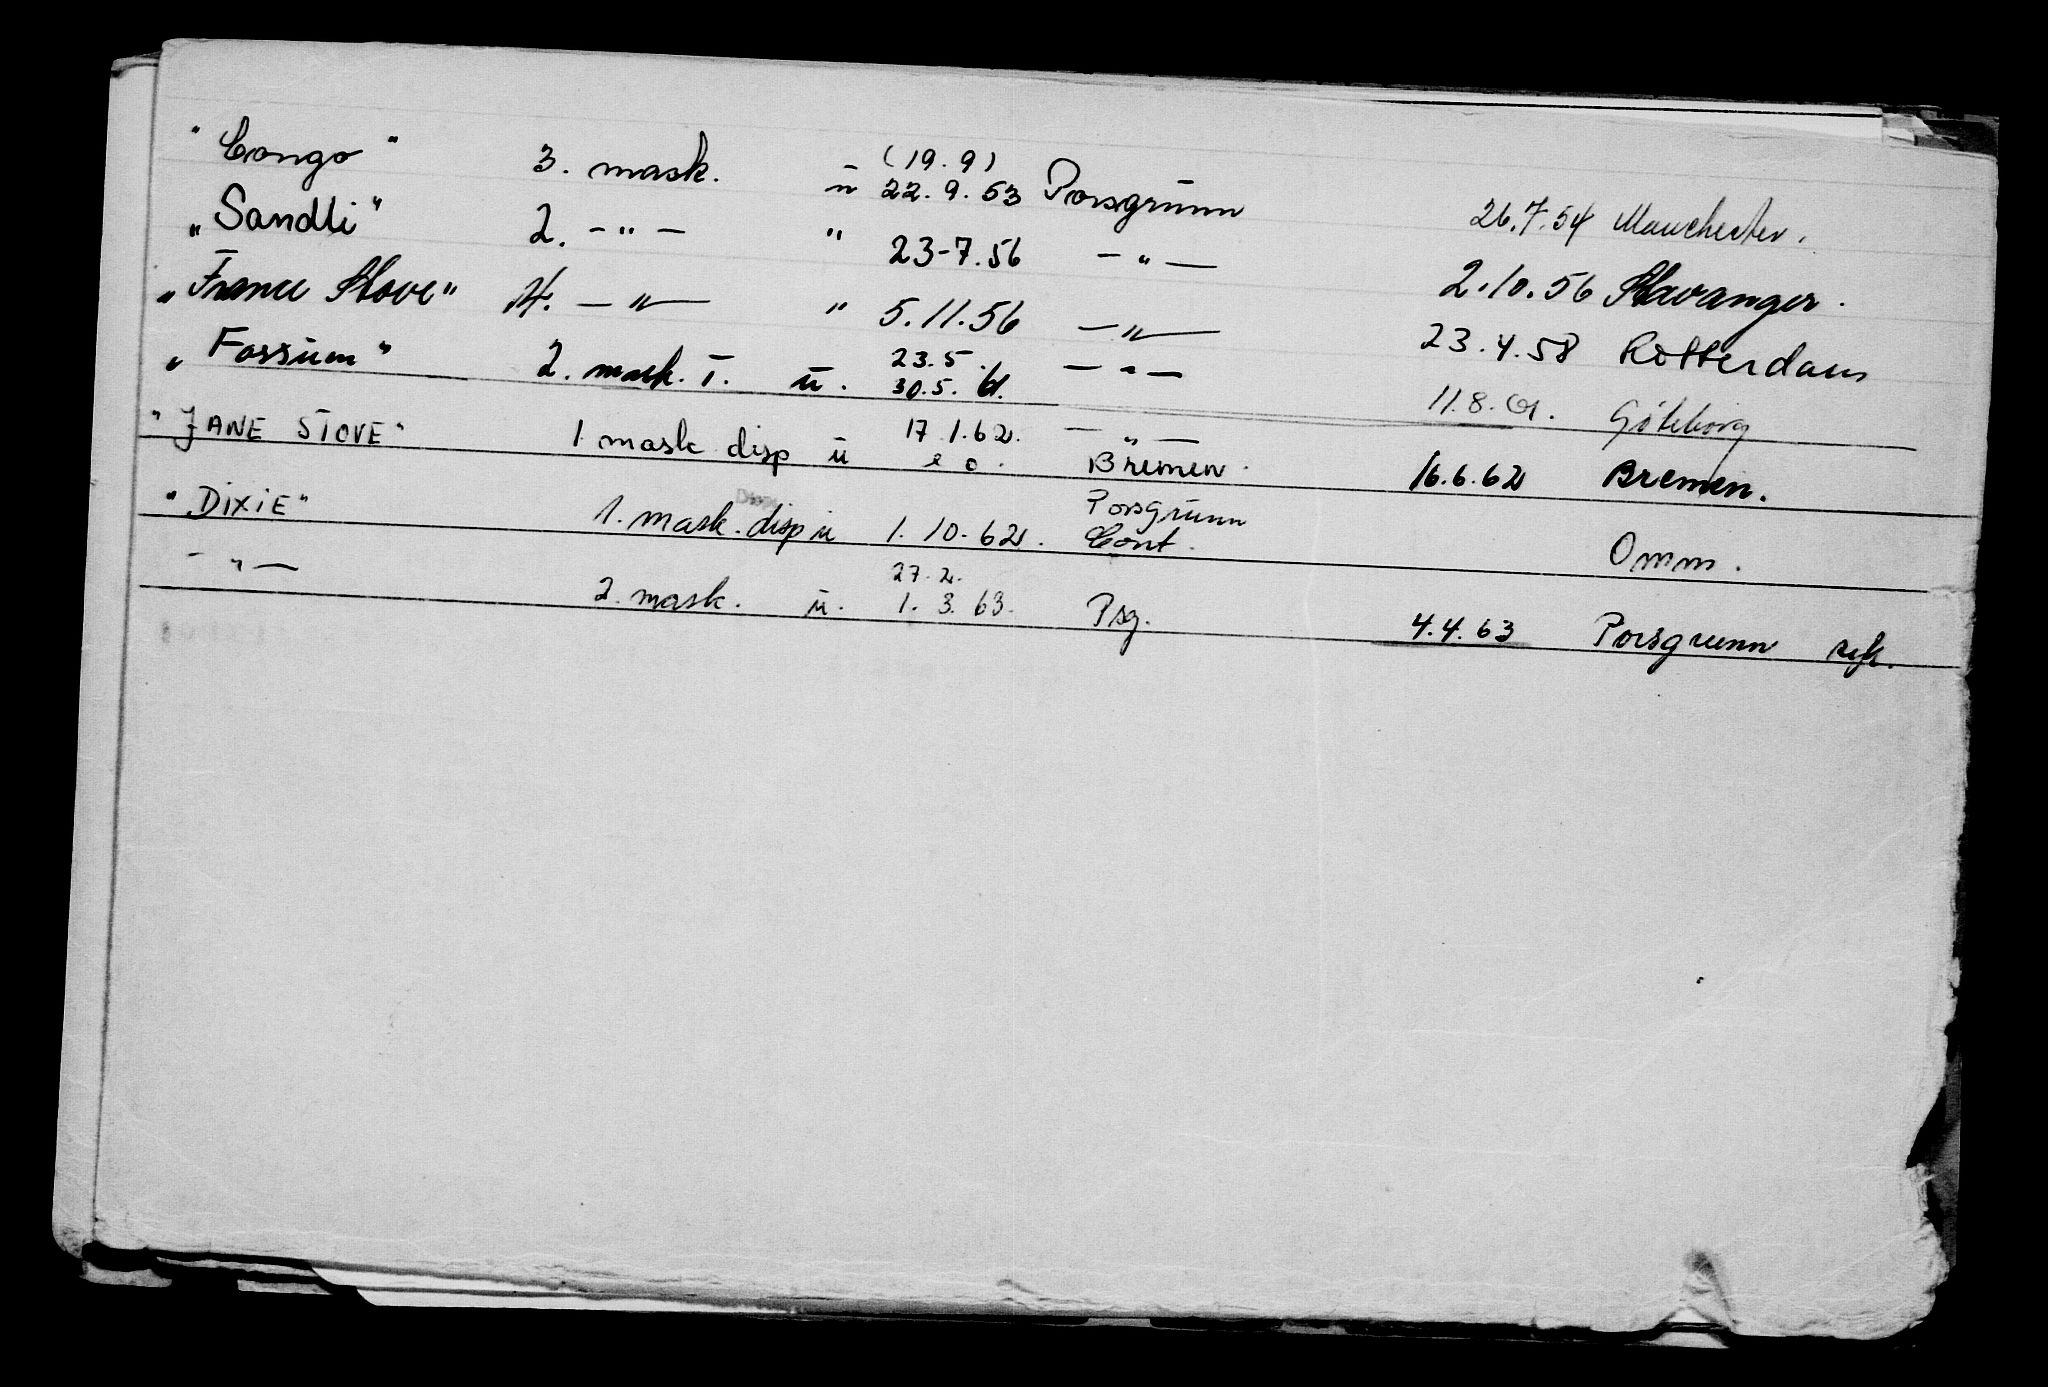 "Congo" 3. mask. u (19.9) 22.9.53 Porsgrunn 26.7.54 Manchester.
"Sandli" 2. - " - " 23-7.56 - " - 2.10.56 Stavanger.
"France Stove" 4. - " - " 5.11.56 - " - 23.4.58 Rotterdam
"Fossum" 2. mask. T. u. 23.5. 30.5.61. - " - 11.8.61. Göteborg
"JANE STOVE" 1. mask disp u 17.1.62. - " -
e o. Bremen. 16.6.62 Bremen.
"DIXIE" 1. mask. disp u 1.10.62. Porsgrunn Cont. Omm.
- " - 2. mask. u. 27.2. 1.3.63. Psg. 4.4.63 Porsgrunn syk.